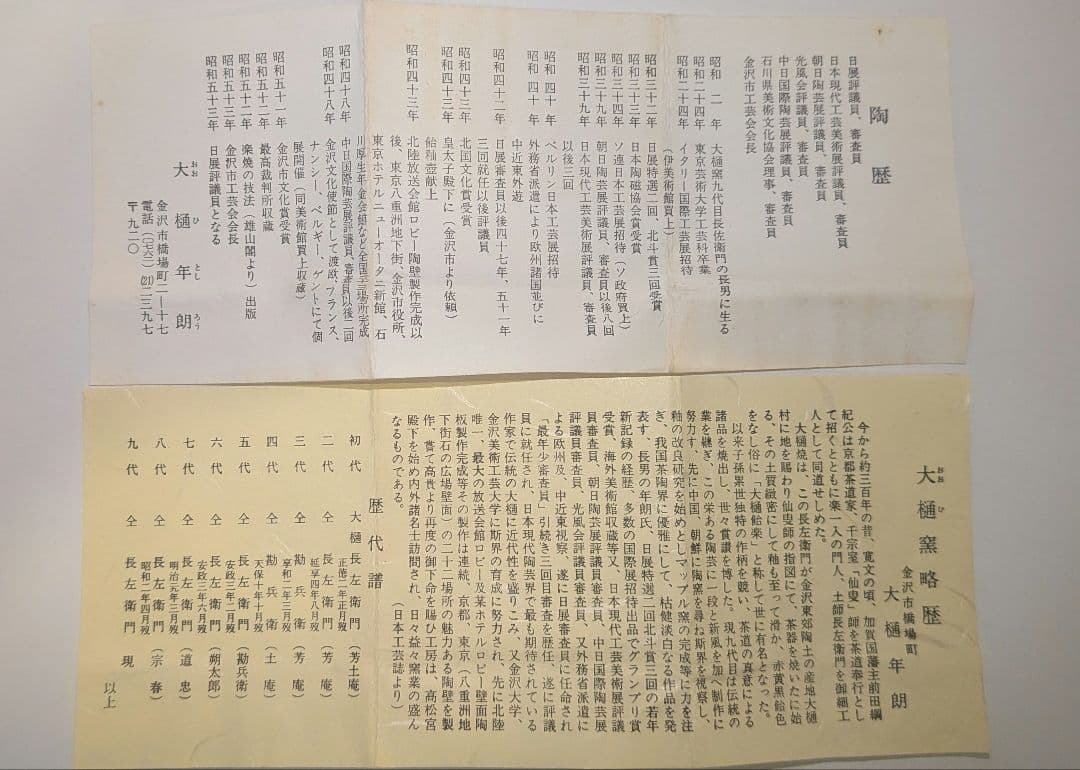 陶歴
日展評議員、審査員
日本現代工芸美術展評議員、審査員
朝日陶芸展評議員、審査員
光風会評議員、審査員
中日国際陶芸展評議員、審査員
石川県美術文化協会理事、審査員
金沢市工芸会会長
昭和二年 大樋窯九代目長佐衛門の長男に生る
昭和二十四年 東京芸術大学工芸科卒業
昭和二十四年 イタリー国際工芸展招待
(伊美術館買上)
昭和三十二年 日展特選二回、北斗賞三回受賞
昭和三十三年 日本陶磁協会賞受賞
昭和三十四年 ソ連日本工芸展招待(ソ政府買上)
昭和三十九年 朝日陶芸展評議員、審査員以後八回
昭和三十九年 日本現代工芸美術展評議員、審査員
以後三回
昭和四十年 ベルリン日本工芸展招待
昭和四十年 外務省派遣により欧州諸国並びに
中近東外遊
昭和四十二年 日展審査員以後四十七年、五十一年
三回就任以後評議員
昭和四十三年 北国文化賞受賞
昭和四十三年 皇太子殿下に(金沢市より依頼)
飴釉壺献上
昭和四十三年 北陸放送会館ロビー陶壁製作完成以
後、東京八重洲地下街、金沢市役所、
東京ホテルニューオータニ新館、石
川厚生年金会館など全国二三場所完成
昭和四十八年 中日国際陶芸展評議員、審査員以後二回
昭和四十八年 金沢文化使節として渡欧、フランス、
ナンシー、ベルギー、ゲントにて個
展開催(同美術館買上収蔵)
昭和五十一年 金沢市文化賞受賞
昭和五十二年 最高裁判所収蔵
昭和五十二年 楽焼の技法(雄山閣より)出版
昭和五十三年 金沢市工芸会会長
昭和五十三年 日展評議員となる
大樋年朗
おおひとしろう
金沢市橋場町二―十七
電話(〇七六二)(21)二三九七
〒九二〇
大樋窯略歴
おおひ
金沢市橋場町
大樋年朗
今から約三百年の昔、寛文の頃、加賀国藩主前田綱
紀公は京都茶道家、千宗室「仙叟」師を茶道奉行とし
て招くとともに楽一入の門人、土師長左衛門を御細工
人として同道せしめた。
大樋焼は、この長左衛門が金沢東郊陶土の産地大樋
村に地を賜わり仙叟師の指図にて、茶器を焼いたに始
る、その土質緻密にして釉も至って滑か、赤黄黒飴色
をなし俗に「大樋飴楽」と称して世に有名となった。
以来子孫累世独特の作柄を競い、茶道の真意による
諸品を焼出し、世々賞讃を博した。現九代目は伝統の
業を継ぎ、この栄ある陶芸に一段と新風を加へ制作に
努力す、先に中国、朝鮮に陶窯を尋ね斯界を視察し、
釉の改良研究を始めとしマッフル窯の完成等に力を注
ぎ、我国茶陶界に優雅にして、枯健淡白なる作品を発
表す、長男の年朗氏、日展特選二回北斗賞三回の若年
新記録の経歴、多数の国際展招待出品でグランプリ賞
受賞、海外美術館収蔵等又、日本現代工芸美術展評議
員審査員、朝日陶芸展評議員審査員、中日国際陶芸展
評議員審査員、光風会評議員審査員、又外務省派遣に
よる欧州及、中近東視察、遂に日展審査員に任命され
「最年少審査員」引続き三回目審査を歴任、遂に評議
員に就任され、日本現代陶芸界で最も期待されている
作家で伝統の大樋に近代性を盛りこみ、又金沢大学、
金沢美術工芸大学に斯界の育成に努力され、先に北陸
唯一、最大の放送会館ロビー及某ホテルロビー壁面陶
板製作完成等その製作は連続、京都、東京(八重洲地
下街石の広場壁面)の二十二場所の魅力ある陶壁を製
作、嘗て高貴より再度の御下命を賜ひ工房は、高松宮
殿下を始め内外諸名士訪問され、日々益々窯業の盛ん
なるものである。(日本工芸誌より)
歴代譜
初代 大樋長左衛門(芳土庵)
正徳二年正月歿
二代 仝 長左衛門(芳庵)
延享四年八月歿
三代 仝 勘兵衛(芳庵)
享和二年三月歿
四代 仝 勘兵衛(土庵)
天保十年十月歿
五代 仝 長左衛門(勘兵衛)
安政三年二月歿
六代 仝 長左衛門(朔太郎)
安政三年六月歿
七代 仝 長左衛門(道忠)
明治元年三月歿
八代 仝 長左衛門(宗春)
昭和二年四月歿
九代 仝 長左衛門 現
以上